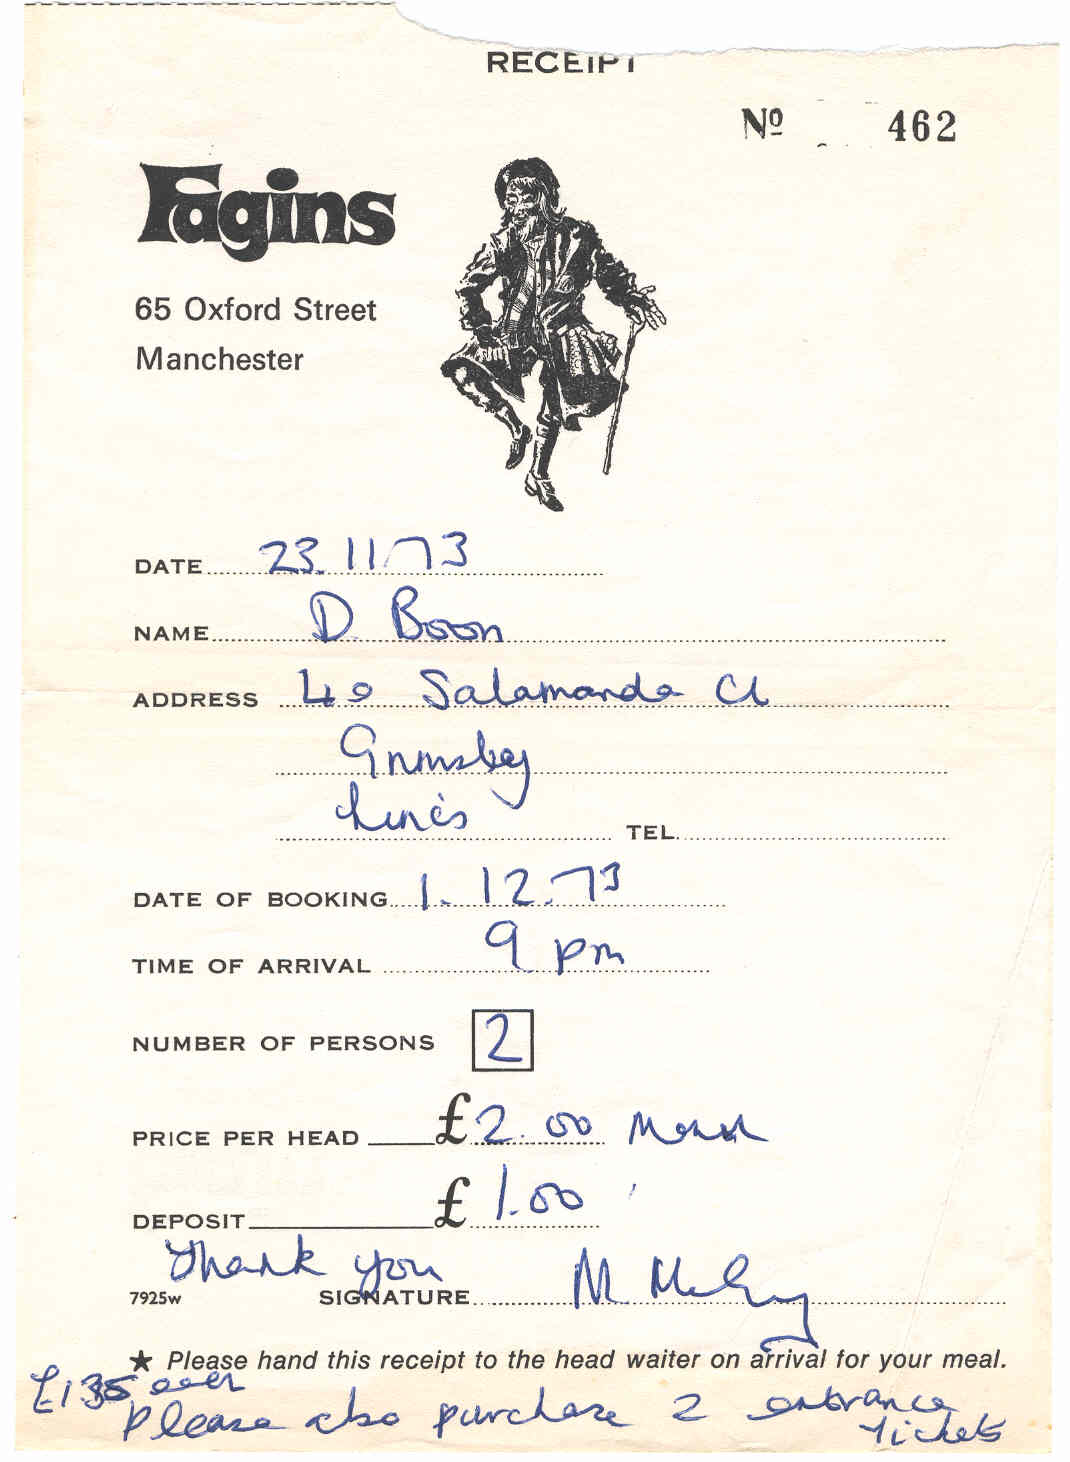 RECEIPT
Nº 462
Fagins
65 Oxford Street
Manchester
DATE 23.11.73
NAME D. Boon
ADDRESS 40 Salamanda Cl
Grimsby
Lincs
TEL.
DATE OF BOOKING 1.12.73
TIME OF ARRIVAL 9 pm
NUMBER OF PERSONS 2
PRICE PER HEAD £2.00
DEPOSIT £1.00
Thank you
7925w SIGNATURE M
★ Please hand this receipt to the head waiter on arrival for your meal.
£1 35 each
Please also purchase 2 entrance
tickets